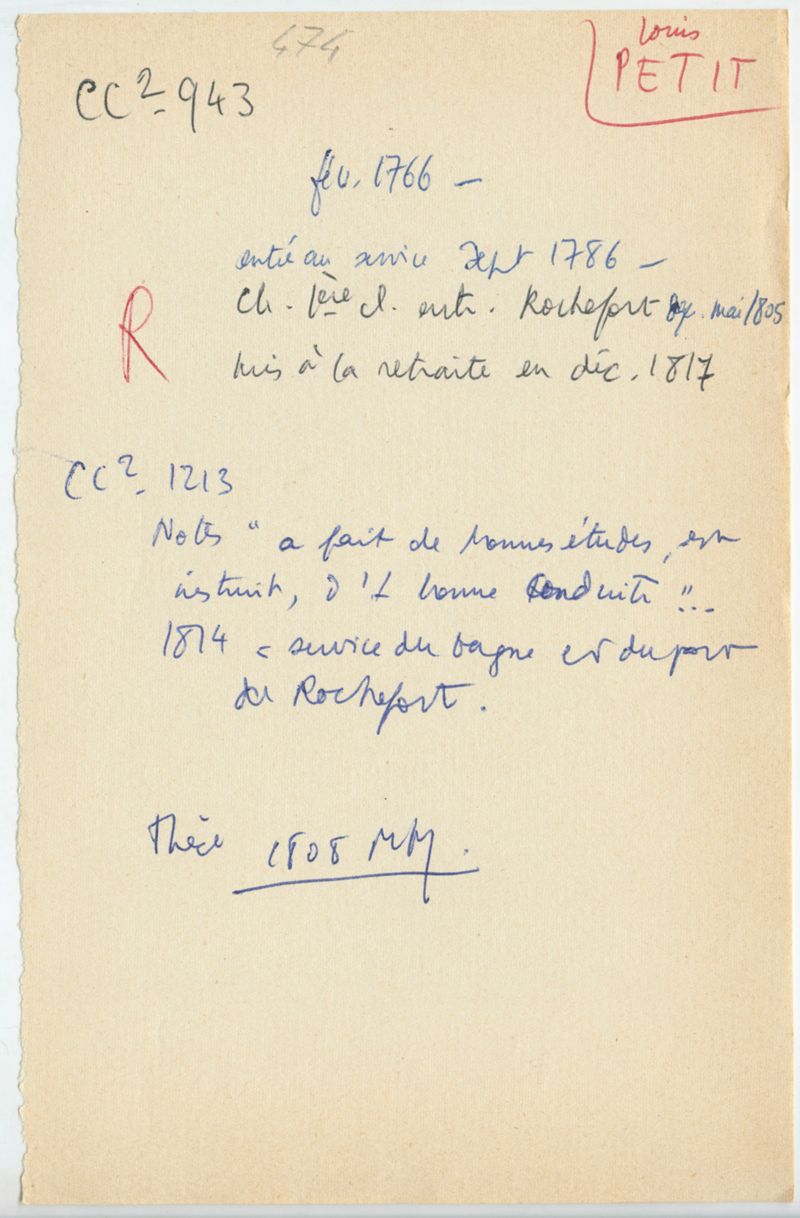 474
Louis
PETIT
CC2 943
fév. 1766 –
entré au service Sept 1786 –
Ch. 1ère cl. entr. Rochefort mai 1805
R
mis à la retraite en déc. 1817
CC2 1213
Notes " a fait de bonnes études, est
instruit, d'1 bonne conduite "...
1814 = service du bagne et du port
de Rochefort.
Thèse 1808 MM.